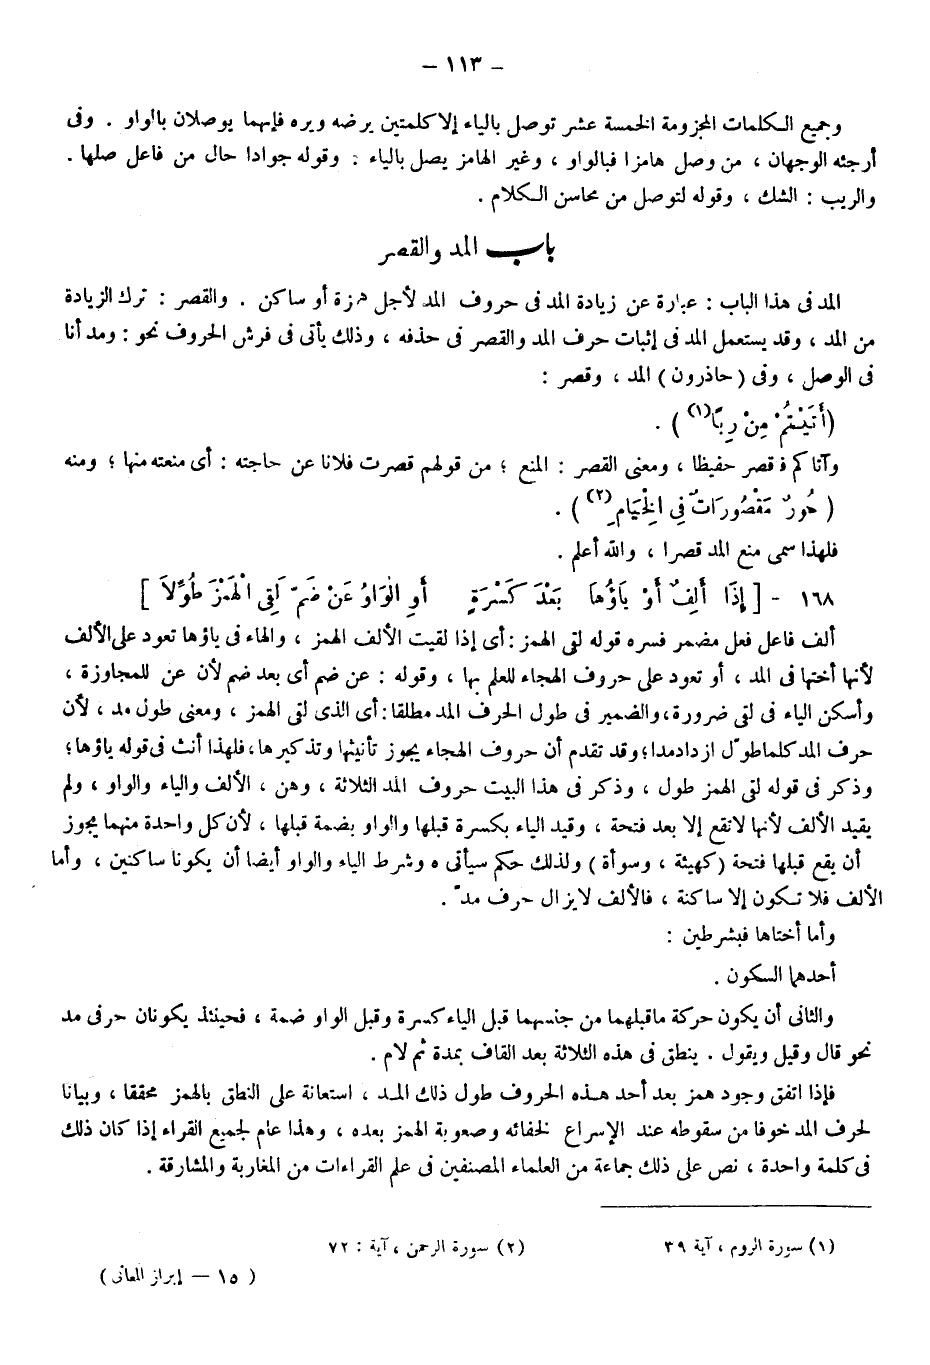 – ١١٣ –
وجميع الكلمات المجزومة الخمسة عشر توصل بالياء إلا كلمتين يرضه ويره فإنهما يوصلان بالواو . وفى
أرجئه الوجهان ، من وصل هامزا فبالواو ، وغير الهامز يصل بالياء : وقوله جوادا حال من فاعل صلها .
والريب : الشك ، وقوله لتوصل من محاسن الكلام .
باب المد والقصر
المد فى هذا الباب : عبارة عن زيادة المد فى حروف المد لأجل همزة أو ساكن . والقصر : ترك الزيادة
من المد ، وقد يستعمل المد فى إثبات حرف المد والقصر فى حذفه ، وذلك يأتى فى فرش الحروف نحو : ومد أنا
فى الوصل ، وفى ( حاذرون ) المد ، وقصر :
(أَتَيْتُمْ مِنْ رِبًا(١) ) .
وآتاكم فقصر حفيظا ، ومعنى القصر : المنع ؛ من قولهم قصرت فلانا عن حاجته : أى منعته منها ؛ ومنه
( حُورٌ مَقْصُورَاتٌ فِى الْخِيَامِ(٢) ) .
فلهذا سمى منع المد قصرا ، والله أعلم .
١٦٨ - [ إِذَا أَلِفٌ أَوْ يَاؤُهَا بَعْدَ كَسْرَةٍ أَوِ الْوَاوُ عَنْ ضَمّ لَقِى الْهَمْزَ طُوِّلَا ]
ألف فاعل فعل مضمر فسره قوله لقى الهمز : أى إذا لقيت الألف الهمز ، والهاء فى ياؤها تعود على الألف
لأنها أختها فى المد ، أو تعود على حروف الهجاء للعلم بها ، وقوله : عن ضم أى بعد ضم لأن عن للمجاوزة ،
وأسكن الياء فى لقى ضرورة، والضمير فى طول الحرف المد مطلقا: أى الذى لقى الهمز ، ومعنى طول مد ، لأن
حرف المد كلما طوّل ازداد مدا؛ وقد تقدم أن حروف الهجاء يجوز تأنيثها وتذكيرها، فلهذا أنث فى قوله ياؤها؛
وذكر فى قوله لقى الهمز طول ، وذكر فى هذا البيت حروف المد الثلاثة ، وهن ، الألف والياء والواو ، ولم
يقيد الألف لأنها لا تقع إلا بعد فتحة ، وقيد الياء بكسرة قبلها والواو بضمة قبلها ، لأن كل واحدة منهما يجوز
أن يقع قبلها فتحة (كهيئة ، وسوأة ) ولذلك حكم سيأتى ه وشرط الياء والواو أيضا أن يكونا ساكنين ، وأما
الألف فلا تكون إلا ساكنة ، فالألف لا يزال حرف مدّ .
وأما أختاها فبشرطين :
أحدهما السكون .
والثانى أن يكون حركة ما قبلهما من جنسهما قبل الياء كسرة وقبل الواو ضمة ، فحينئذ يكونان حرفى مد
نحو قال وقيل ويقول . ينطق فى هذه الثلاثة بعد القاف بمدة ثم لام .
فإذا اتفق وجود همز بعد أحد هذه الحروف طول ذلك المد ، استعانة على النطق بالهمز محققا ، وبيانا
لحرف المد خوفا من سقوطه عند الإسراع لخفائه وصعوبة الهمز بعده ، وهذا عام لجميع القراء إذا كان ذلك
فى كلمة واحدة ، نص على ذلك جماعة من العلماء المصنفين فى علم القراءات من المغاربة والمشارقة .
(١) سورة الروم ، آية ٣٩ (٢) سورة الرحمن ، آية : ٧٢
( ١٥ – إبراز المعانى )